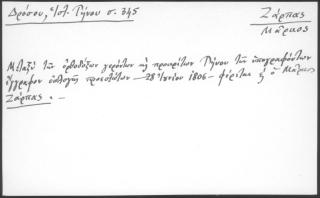 Δρόσου, Ιστ. Τήνου σ. 345
Ζάρπας
Μάρκος
Μεταξύ των ορθοδόξων γερόντων και προκρίτων Τήνου των υπογραφόντων
έγγραφον εκλογής προεστώτων — 28 Ιουνίου 1806 — φέρεται και ο Μάρκος
Ζάρπας. —